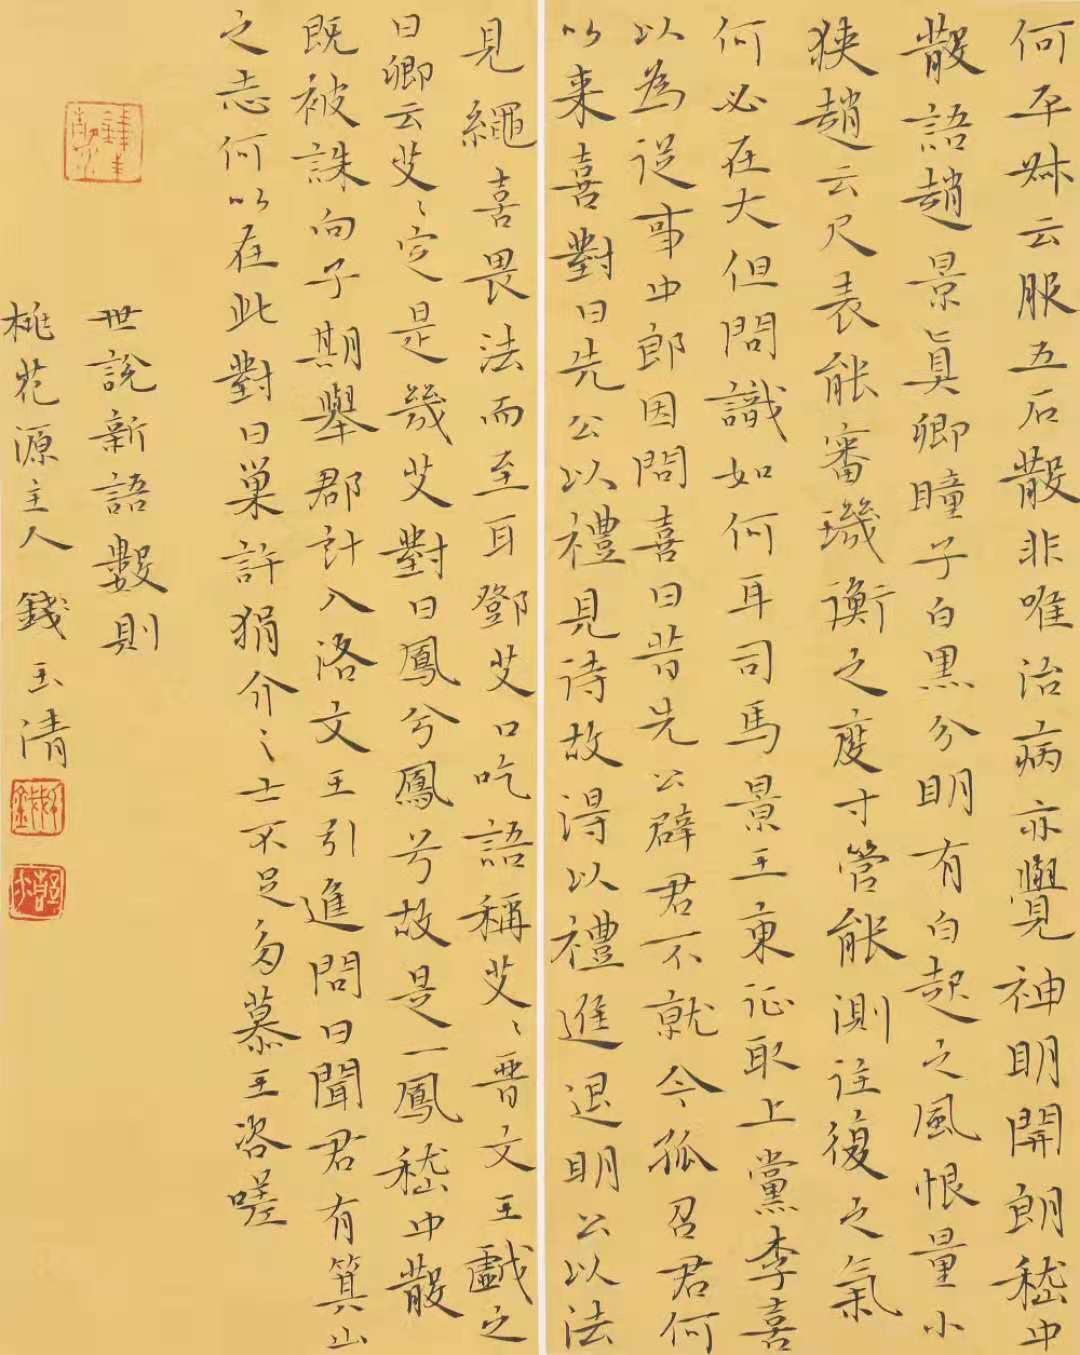 何平叔云服五石散非唯治病亦覺神明開朗嵇中
散語趙景真卿瞳子白黑分明有白起之風恨量小
狹趙云尺表能審璣衡之度寸管能測往復之氣
何必在大但問識如何耳司馬景王東征取上黨李喜
以為從事中郎因問喜曰昔先公辟君不就今孤召君何
以来喜對曰先公以禮見待故得以禮進退明公以法
見繩喜畏法而至耳鄧艾口吃語稱艾〻晉文王戱之
曰卿云艾〻定是幾艾對曰鳳兮鳳兮故是一鳳嵇中散
既被誅向子期舉郡計入洛文王引進問曰聞君有箕山
之志何以在此對曰巢許狷介之士不足多慕王咨嗟
世說新語數則
桃花源主人 錢玉清